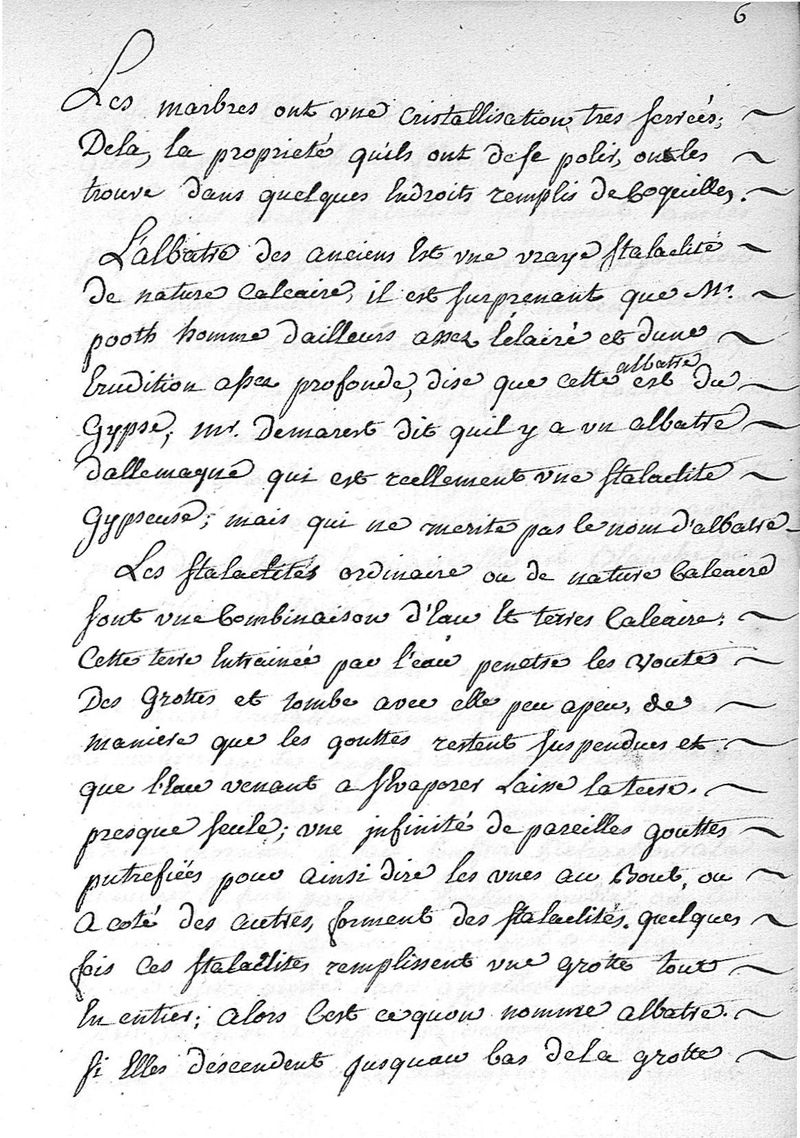 6
Les marbres ont vne cristallisation tres serrées;
Dela, la proprieté quils ont dese polir, on les
trouve dans quelques Endroits remplis de Coquilles.
L'albatre des anciens Est vne vraye stalactite
de nature Calcaire, il est surprenant que Mr.
pooth homme dailleurs assez Eclairé et dune
Erudition assez profonde, dise que cette albatre est du
Gypse, mr. Demarest dit quil y a vn albatre
dallemagne qui est reellement vne stalactite
Gypseuse; mais qui ne merite pas le nom d'albatre
Les stalactités ordinaire ou de nature Calcaire
sont vne Combinaison d'Eau Et terres Calcaire;
Cette terre Entrainée par l'eau penetre les voutes
Des Grottes et tombe avec elle peu apeu, de
maniere que les gouttes restent suspendues et
que l'Eau venant a sEvaporer Laisse laterre
presque seule; vne infinité de pareilles gouttes
putrefiées pour ainsi dire les vnes au Bout, ou
a coté des autres, forment des stalactités. quelques
fois ces stalactites remplissent vne grotte tout
En entier; alors C'est ce quon nomme albatre.
si Elles descendent jusquau bas dela grotte